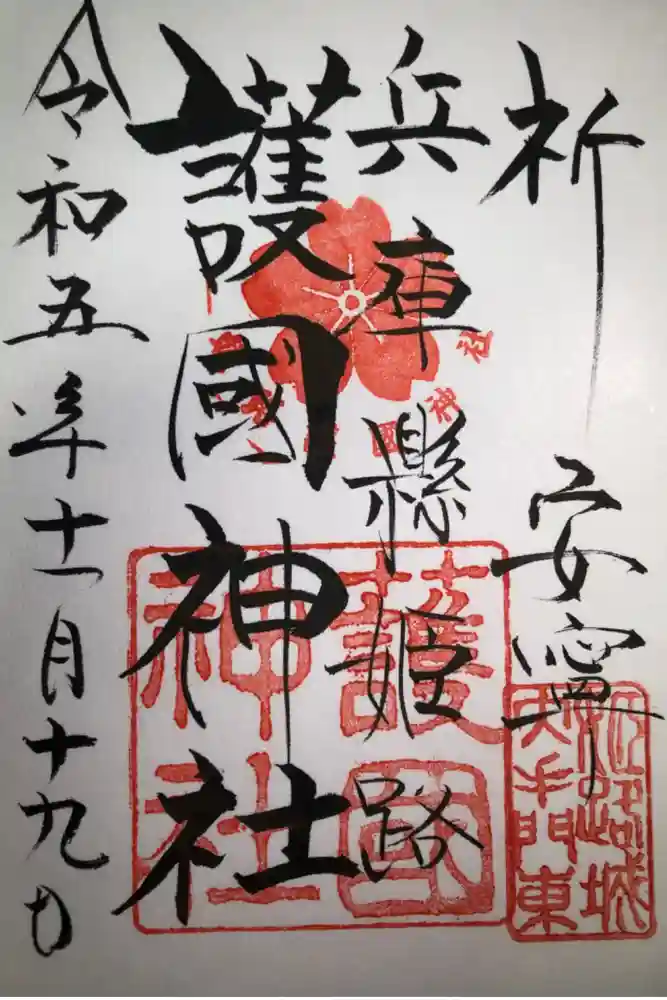 祈 安寧
兵庫縣姫路
護國神社
令和五年十一月十九日
護國神社
姫路城
大手門東